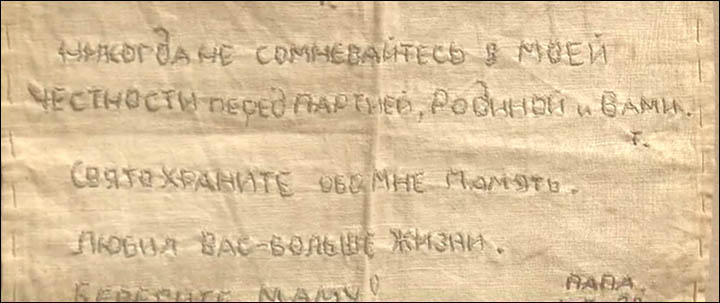 никогда не сомневайтесь в моей
честности перед партией, родиной и вами.
т.
свято храните обо мне память.
любил вас-больше жизни.
берегите маму!
папа.